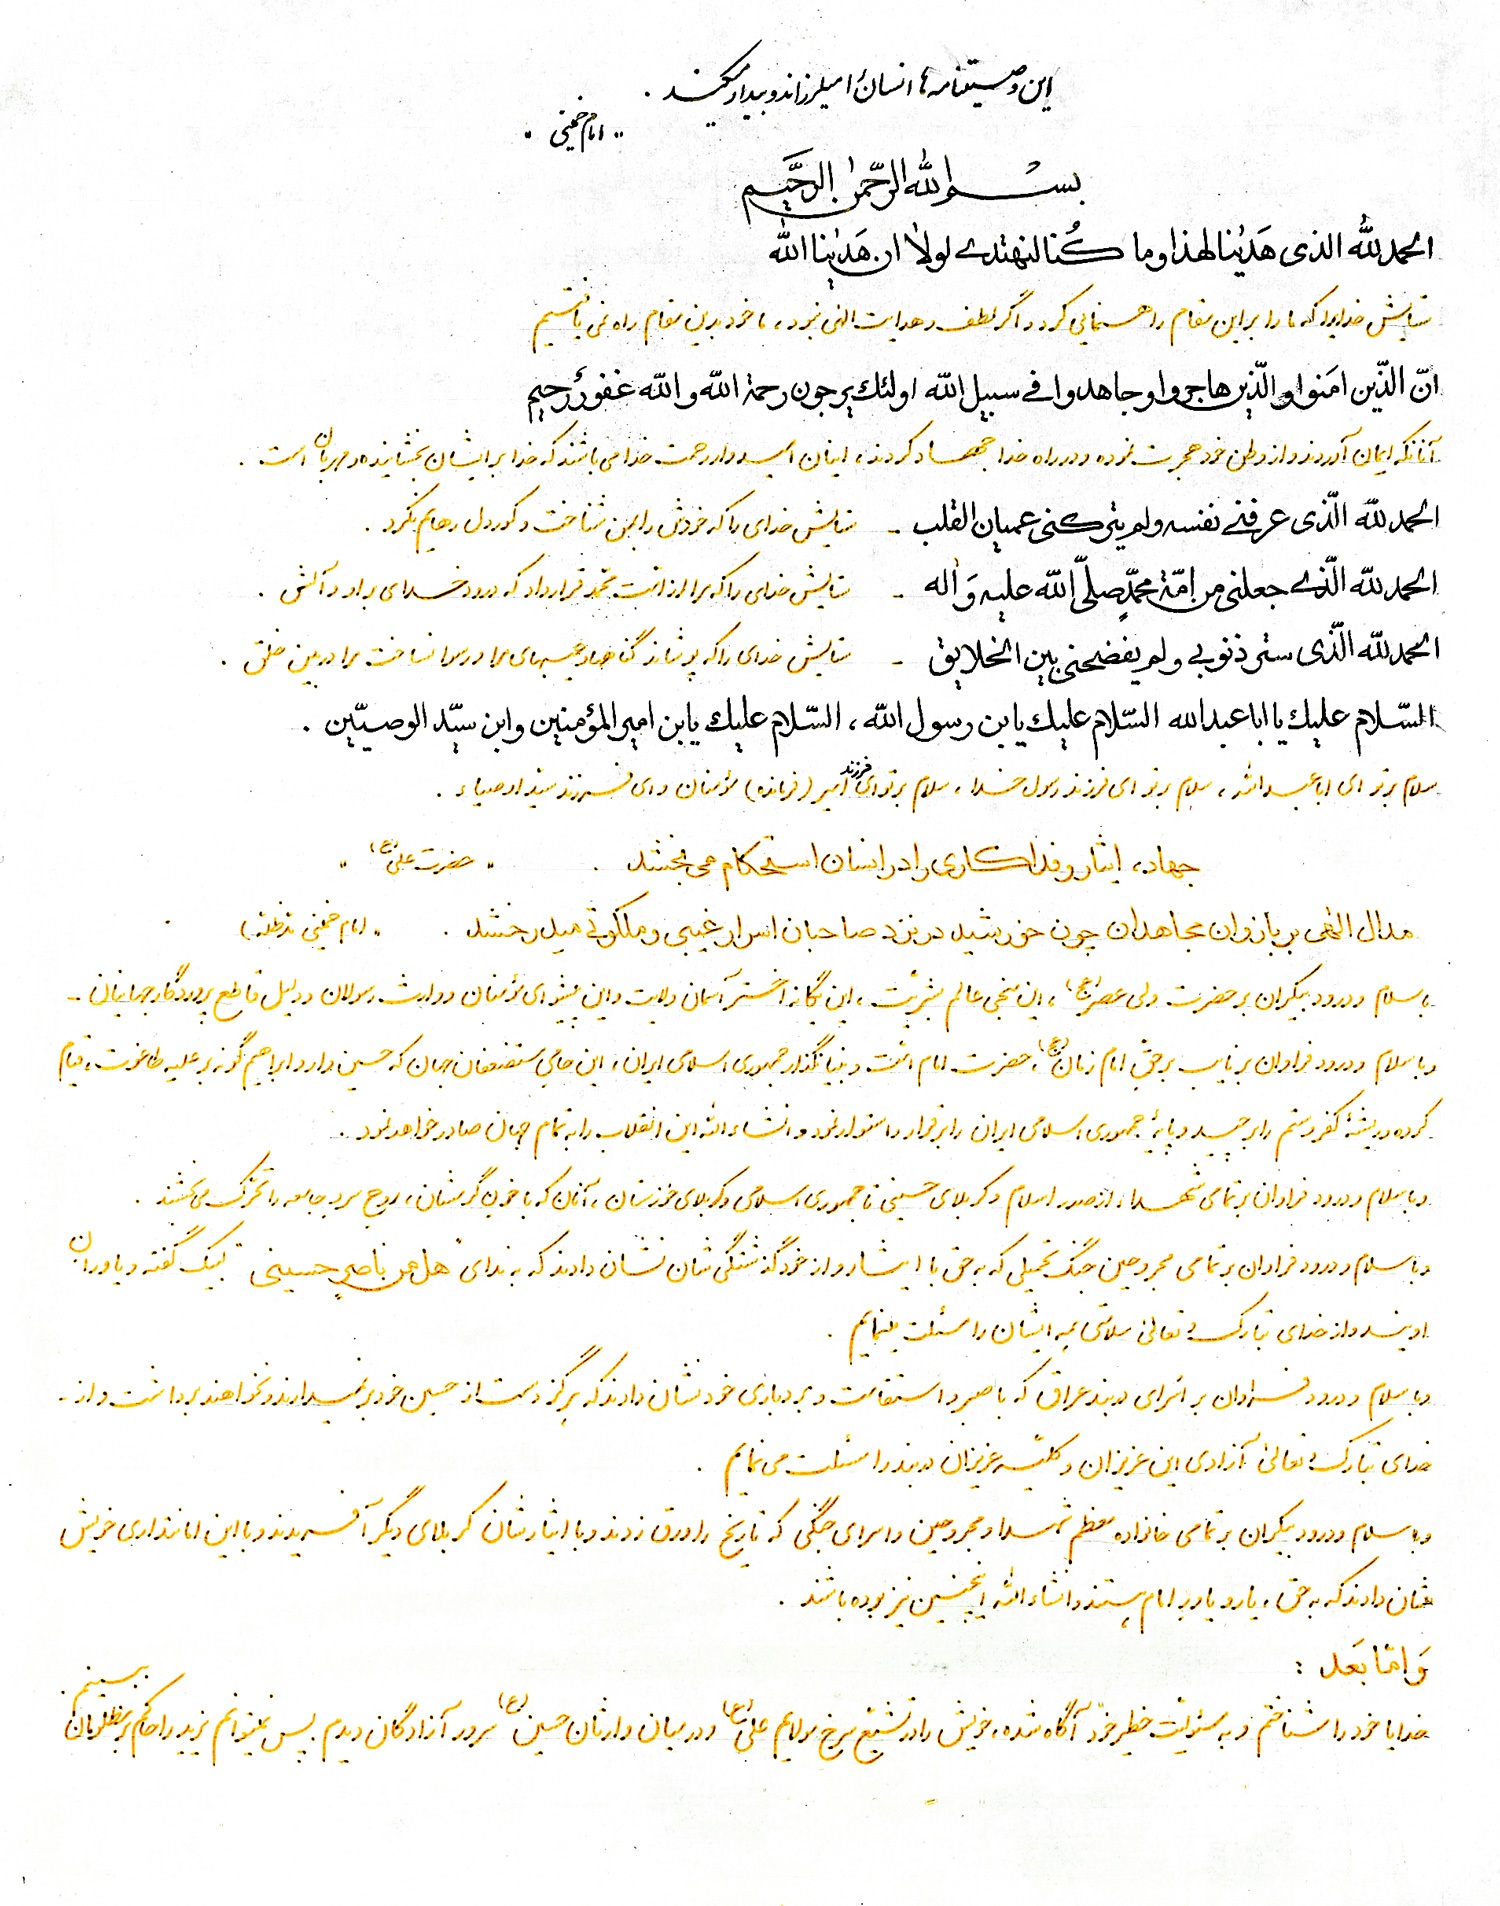 این وصیتنامه ها انسان را میلرزاند و بیدار میکند .
" امام خمینی "
بسم الله الرّحمن الرّحیم
الحمدلله الذی هَدیٰنا لهذا و ما کُنا لنهتدی لولا ان هَدیٰنا الله
ستایش خدایرا که ما را بر این مقام راهنمایی کرد و اگر لطف و هدایت الهی نبود ، ما خود بدین مقام راه نمی یافتیم
انّ الذّین امَنوا و الّذین هاجروا و جاهدوا فی سبیل الله اولئک یرجون رحمة الله و الله غفورٌ رحیم
آنانکه ایمان آوردند و از وطن خود هجرت نموده و در راه خدا جهاد کردند ، اینان امیدوار رحمت خدا می باشند که خدا بر ایشان بخشاینده و مهربان است .
الحمدلله الّذی عرفنی نفسه و لم یترکنی عمیان القلب - ستایش خدای را که خودش را بمن شناخت و کوردل رهایم نکرد .
الحمدلله الّذی جعلنی من امّة محمّدٍ صلّی الله علیه وَ آله - ستایش خدای را که مرا از امّت محمّد قرار داد که درود خدای بر او و آلش .
الحمدلله الّذی ستر ذنوبی و لم یفضحنی بین الخلایق - ستایش خدای را که پوشاند گناهان و عیبهای مرا و رسوا نساخت مرا در بین خلق .
السّلام علیک یا ابا عبدالله السّلام علیک یابن رسول الله ، السّلام علیک یابن امیرالمؤمنین و ابن سیّد الوصیّین .
سلام بر تو ای ابا عبدالله ، سلام بر تو ای فرزند رسول خدا ، سلام بر تو ای فرزند امیر (فرمانده) مؤمنان و ای فرزند سید اوصیاء .
جهاد ، ایثار و فداکاری را در انسان استحکام می بخشد . " حضرت علی (ع) "
مدال الٰهی بر بازوان مجاهدان چون خورشید در نزد صاحبان اسرار غیبی و ملکوتی میدرخشد . " امام خمینی مدظله )
با سلام و درود بیکران بر حضرت ولی عصر (عج) ، این منجی عالم بشریّت ، این یگانه اختر آسمان ولایت و این پیشوای مؤمنان و وارث رسولان و دلیل قاطع پروردگار جهانیان -
و با سلام و درود فراوان بر نایب بر حقّ امام زمان (عج) ، حضرت امام امّت و بنیانگذار جمهوری اسلامی ایران ، این حامی مستضعفان جهان که حسین وار و ابراهیم گونه بر علیه طاغوت ، قیام
کرده و ریشهٔ کفر و ستم را برچیده و پایهٔ جمهوری اسلامی ایران را برقرار و استوار نمود و انشاءالله این انقلاب را به تمام جهان صادر خواهد نمود .
و با سلام و درود فراوان بر تمامی شهدا ، از صدر اسلام و کربلای حسینی تا جمهوری اسلامی و کربلای خوزستان ، آنان که با خون گرمشان ، روح سرد جامعه را تحرّک می بخشند .
و با سلام و درود فراوان بر تمامی مجروحین جنگ تحمیلی که به حق با ایثار و از خود گذشتگی شان نشان دادند که به ندای " هل من ناصرٍ حسینی " لبیک گفته و یاوران
اویند و از خدای تبارک و تعالیٰ سلامتی همه ایشان را مسئلت مینمایم .
و با سلام و درود فراوان بر اسرای دربند عراق که با صبر و استقامت و بردباری خود نشان دادند که هرگز دست از حسین خود برنمیدارند و نخواهند برداشت و از -
خدای تبارک و تعالیٰ آزادی این عزیزان و کلیّه عزیزان دربند را مسئلت می نمایم .
و با سلام و درود بیکران بر تمامی خانواده معظم شهدا و مجروحین و اسرای جنگی که تاریخ را ورق زدند و با ایثارشان کربلای دیگر آفریدند و با این امانتداری خویش
نشان دادند که به حق ، یار و یاور امام هستند و انشاءالله اینچنین نیز بوده باشند .
وَ امّا بَعد :
خدایا خود را شناختم و به مسئولیّت خطیر خود آگاه شده ، خویش را در تشیّع سرخ مولایم علی (ع) و در میان وارثان حسین (ع) سرور آزادگان دیدم پس نمیتوانم یزید را حاکم بر مظلومان ببینم .